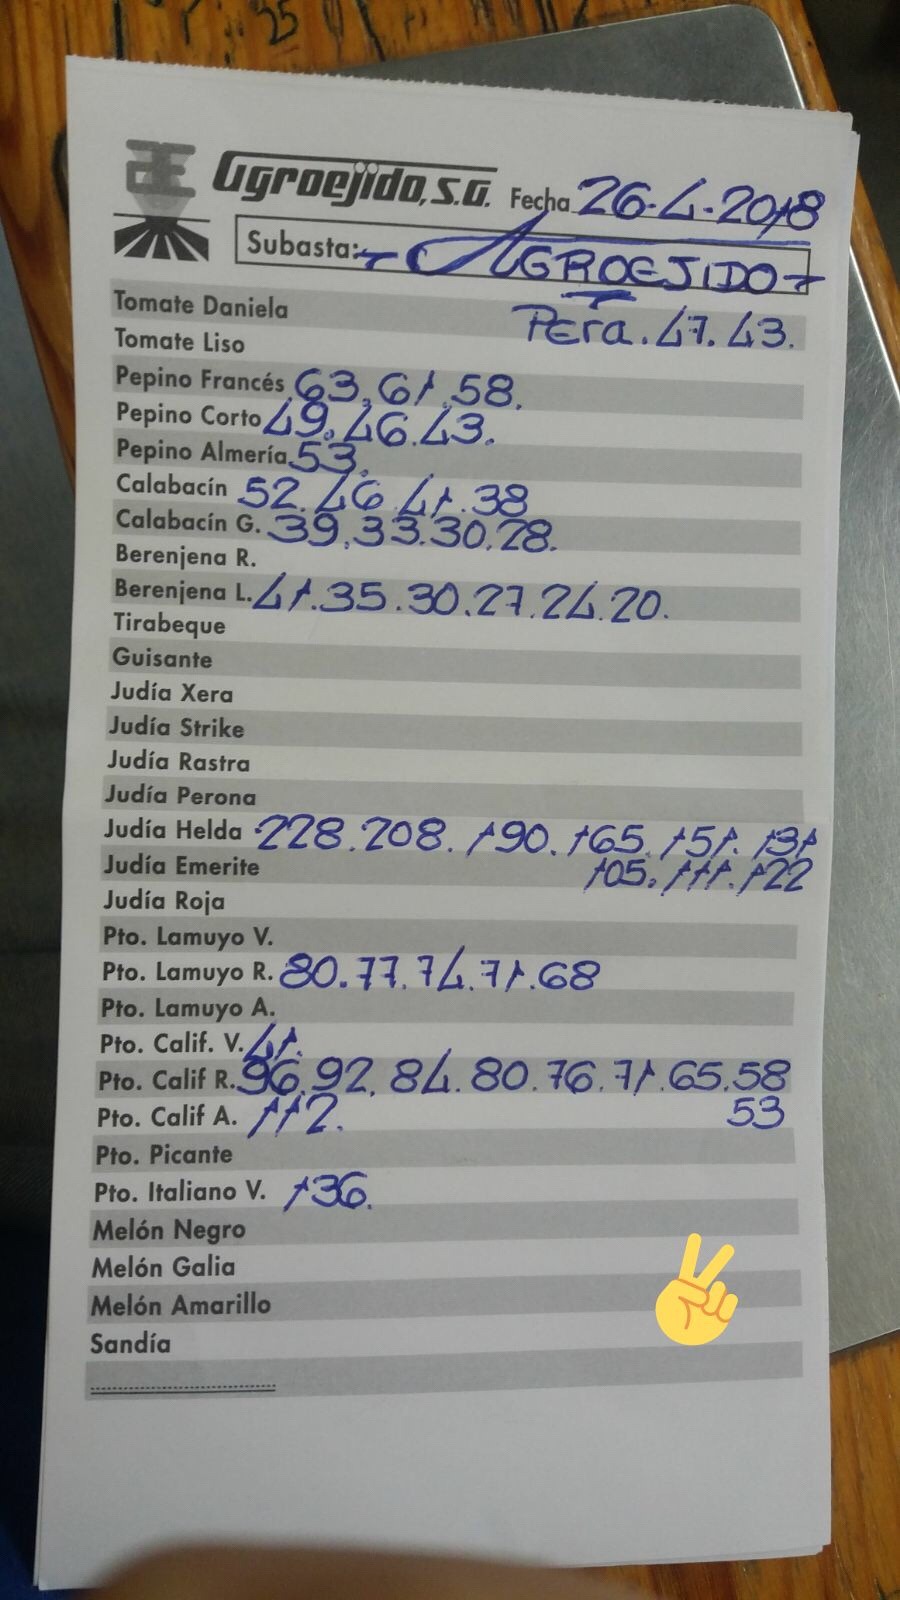 Agroejido, S.A. Fecha 26-4-2018
Subasta: - AGROEJIDO -
Tomate Daniela
Pera. 47. 43.
Tomate Liso
Pepino Francés 63. 61. 58.
Pepino Corto 49. 46. 43.
Pepino Almería 53.
Calabacín 52. 46. 41. 38
Calabacín G. 39. 33. 30. 28.
Berenjena R.
Berenjena L. 41. 35. 30. 27. 24. 20.
Tirabeque
Guisante
Judía Xera
Judía Strike
Judía Rastra
Judía Perona
Judía Helda 228. 208. 190. 165. 151. 131
Judía Emerite 105. 111. 122
Judía Roja
Pto. Lamuyo V.
Pto. Lamuyo R. 80. 77. 74. 71. 68
Pto. Lamuyo A.
Pto. Calif. V. 41.
Pto. Calif R. 96. 92. 84. 80. 76. 71. 65. 58
Pto. Calif A. 112. 53
Pto. Picante
Pto. Italiano V. 136.
Melón Negro
Melón Galia
Melón Amarillo
Sandía